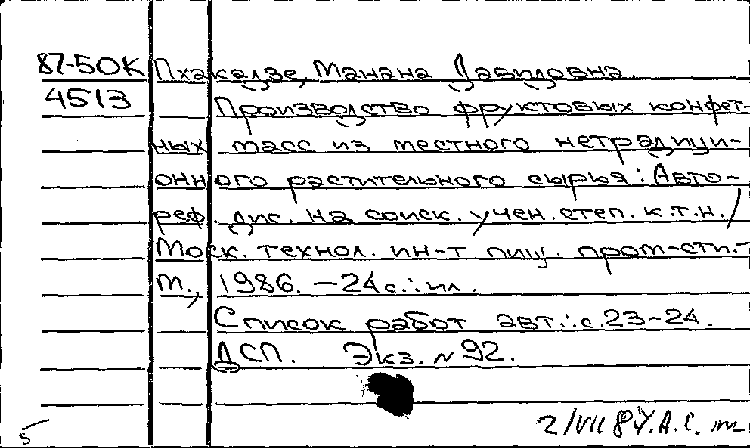 87-50К Пхакадзе, Манана Давидовна
4513 Производство фруктовых конфет-
ных масс из местного нетрадици-
онного растительного сырья: Авто-
реф. дис. на соиск. учен. степ. к.т.н. /
Моск. технол. ин-т пищ. пром-сти.-
М., 1986. - 24 с.: ил.
Список работ авт.: с. 23-24.
ДСП. Экз. № 92.
5